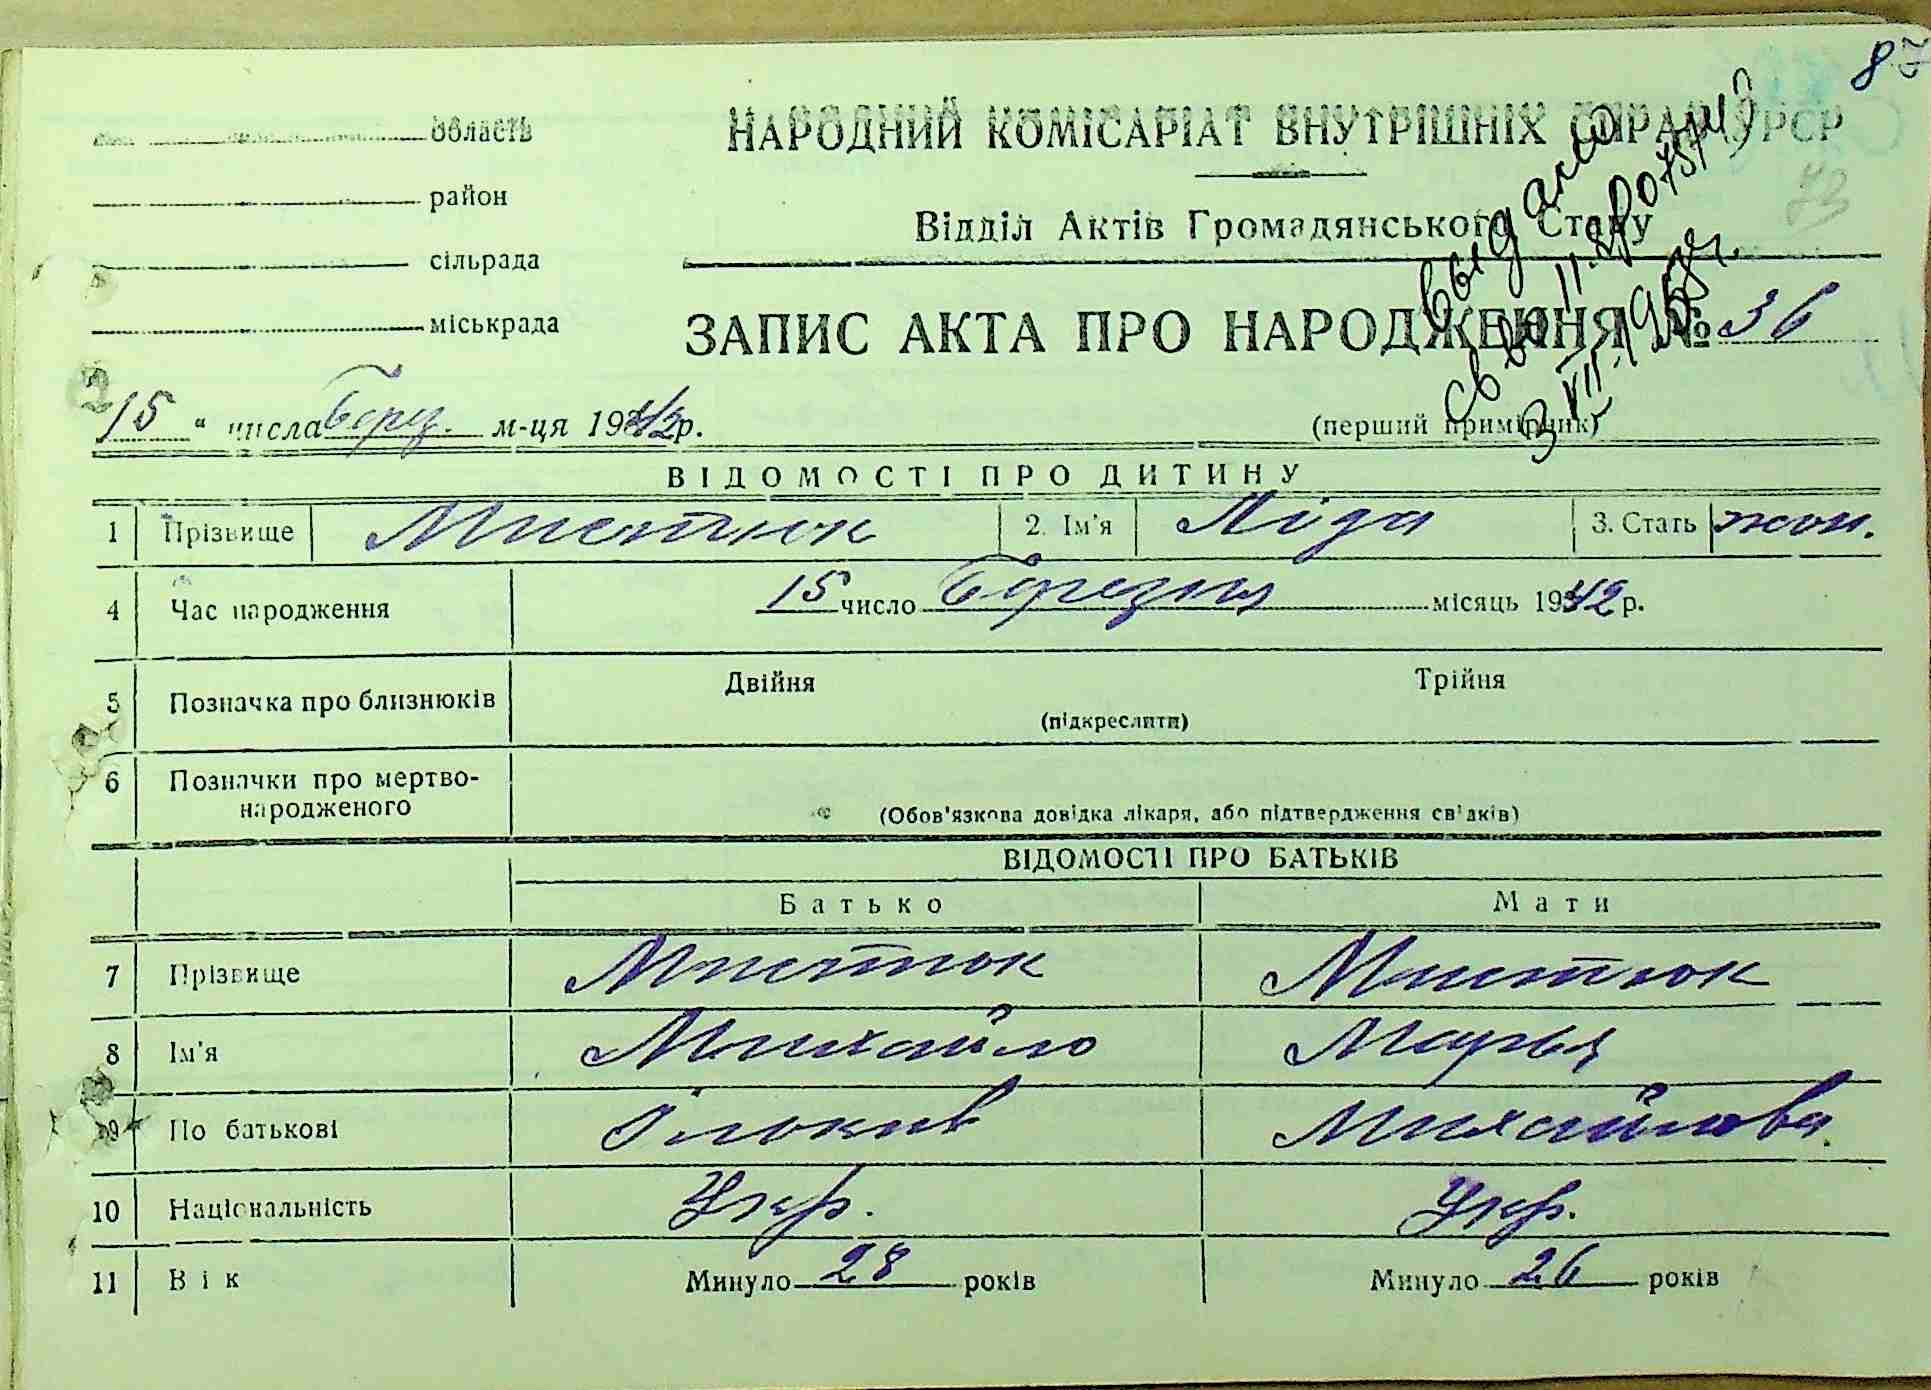 87
область
НАРОДНИЙ КОМІСАРІАТ ВНУТРІШНІХ СПРАВ УРСР
район
73
Відділ Актів Громадянського Стану
сільрада
міськрада
ЗАПИС АКТА ПРО НАРОДЖЕННЯ № 36
выдано
св во II-
3 VII-1957г.
15 " числа Берез. м-ця 1942р.
(перший примірник)
ВІДОМОСТІ ПРО ДИТИНУ
1 Прізвище Мистюк 2. Ім'я Ліда 3. Стать жон.
4 Час народження 15 число Березня місяць 1942 р.
5 Позначка про близнюків Двійня Трійня
(підкреслити)
6 Позначки про мертво-
народженого
(Обов'язкова довідка лікаря, або підтвердження свідків)
ВІДОМОСТІ ПРО БАТЬКІВ
Батько Мати
7 Прізвище Мистюк Мистюк
8 Ім'я Михайло Марья
9 По батькові Михайлова
10 Національність Укр. Укр.
11 Вік Минуло 28 років Минуло 26 років